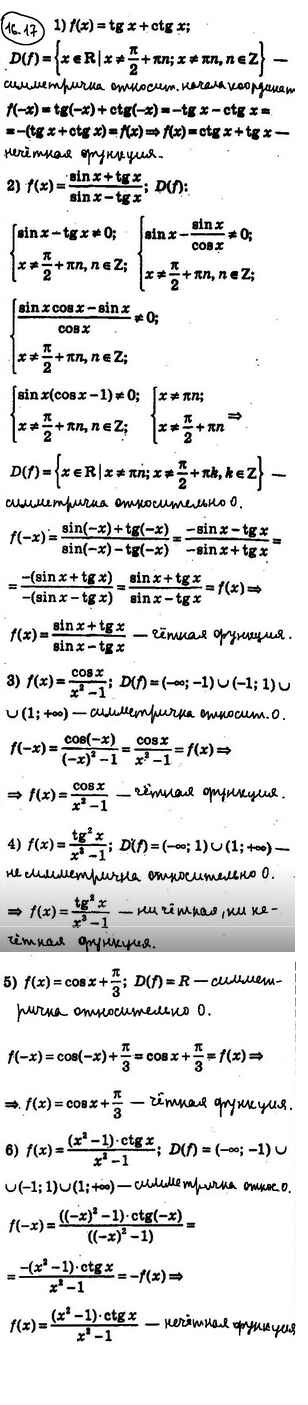 16.17 1) f(x) = tg x + ctg x;
D(f) = {x ∈ R | x ≠ π/2 + πn; x ≠ πn, n ∈ Z} —
симметрична относит. начала координат
f(-x) = tg(-x) + ctg(-x) = -tg x - ctg x =
= -(tg x + ctg x) = f(x) ⇒ f(x) = ctg x + tg x —
нечётная функция.
2) f(x) = (sin x + tg x)/(sin x - tg x); D(f):
{sin x - tg x ≠ 0; x ≠ π/2 + πn, n ∈ Z; {sin x - sin x/cos x ≠ 0; x ≠ π/2 + πn, n ∈ Z;
{(sin x cos x - sin x)/cos x ≠ 0; x ≠ π/2 + πn, n ∈ Z;
{sin x(cos x - 1) ≠ 0; x ≠ π/2 + πn, n ∈ Z; {x ≠ πn; x ≠ π/2 + πn ⇒
D(f) = {x ∈ R | x ≠ πn; x ≠ π/2 + πk, k ∈ Z} —
симметрична относительно 0.
f(-x) = (sin(-x) + tg(-x))/(sin(-x) - tg(-x)) = (-sin x - tg x)/(-sin x + tg x) =
= -(sin x + tg x)/-(sin x - tg x) = (sin x + tg x)/(sin x - tg x) = f(x) ⇒
f(x) = (sin x + tg x)/(sin x - tg x) — чётная функция.
3) f(x) = cos x/(x² - 1); D(f) = (-∞; -1) ∪ (-1; 1) ∪
∪ (1; +∞) — симметрична относит. 0.
f(-x) = cos(-x)/((-x)² - 1) = cos x/(x² - 1) = f(x) ⇒
⇒ f(x) = cos x/(x² - 1) — чётная функция.
4) f(x) = tg² x/(x³ - 1); D(f) = (-∞; 1) ∪ (1; +∞) —
не симметрична относительно 0.
⇒ f(x) = tg² x/(x³ - 1) — ни чётная, ни не-
чётная функция.
5) f(x) = cos x + π/3; D(f) = R — симмет-
рична относительно 0.
f(-x) = cos(-x) + π/3 = cos x + π/3 = f(x) ⇒
⇒ f(x) = cos x + π/3 — чётная функция.
6) f(x) = (x² - 1) · ctg x/(x² - 1); D(f) = (-∞; -1) ∪
∪ (-1; 1) ∪ (1; +∞) — симметрична относ. 0.
f(-x) = ((-x)² - 1) · ctg(-x)/((-x)² - 1) =
= -(x² - 1) · ctg x/(x² - 1) = -f(x) ⇒
f(x) = (x² - 1) · ctg x/(x² - 1) — нечётная функция